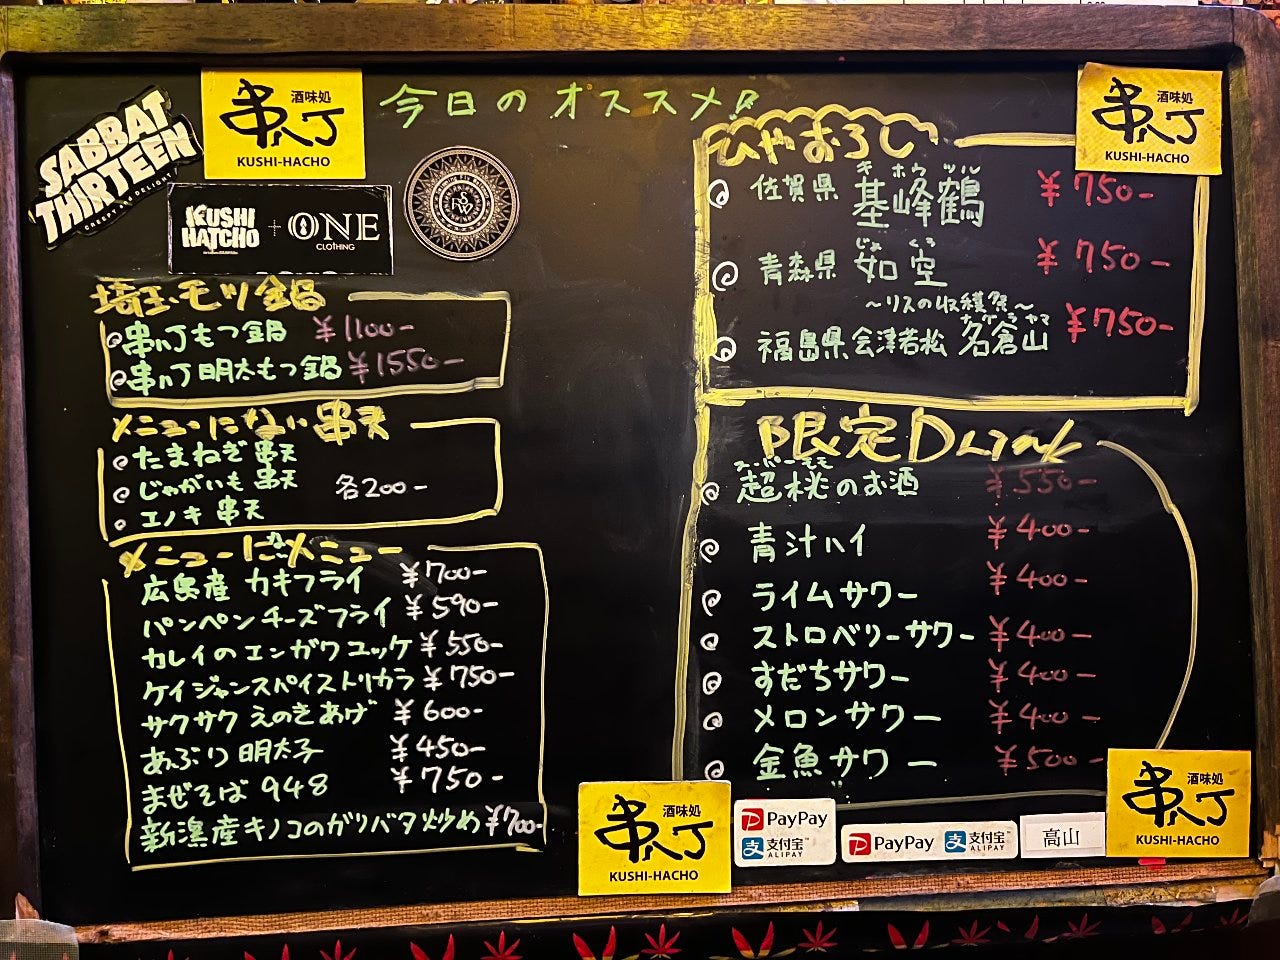 今日のオススメ!!
SABBAT
THIRTEEN
酒味処
串八丁
KUSHI-HACHO
KUSHI
HATCHO
+
ONE
CLOTHING
埼玉モツ鍋
串八丁もつ鍋 ¥1100-
串八丁明太もつ鍋 ¥1550-
メニューにない串天
たまねぎ串天
じゃがいも串天
エノキ串天
各200-
メニューにないメニュー
広島産カキフライ ¥700-
パンペンチーズフライ ¥590-
カレイのエンガワユッケ ¥550-
ケイジャンスパイストリカラ ¥750-
サクサクえのきあげ ¥600-
あぶり明太子 ¥450-
まぜそば948 ¥750-
新潟産キノコのガリバタ炒め ¥700-
ひやおろし
酒味処
串八丁
KUSHI-HACHO
キ ホウ ツル
佐賀県 基峰鶴 ¥750-
じょ くう
青森県 如空 ¥750-
〜リスの収穫祭〜
ナグラヤマ
福島県会津若松 名倉山 ¥750-
限定Drink
スーパーモモ
超桃のお酒 ¥550-
青汁ハイ ¥400-
ライムサワー ¥400-
ストロベリーサワー ¥400-
すだちサワー ¥400-
メロンサワー ¥400-
金魚サワー ¥500-
酒味処
串八丁
KUSHI-HACHO
PayPay
支付宝
ALIPAY
PayPay 支付宝
ALIPAY
高山
酒味処
串八丁
KUSHI-HACHO